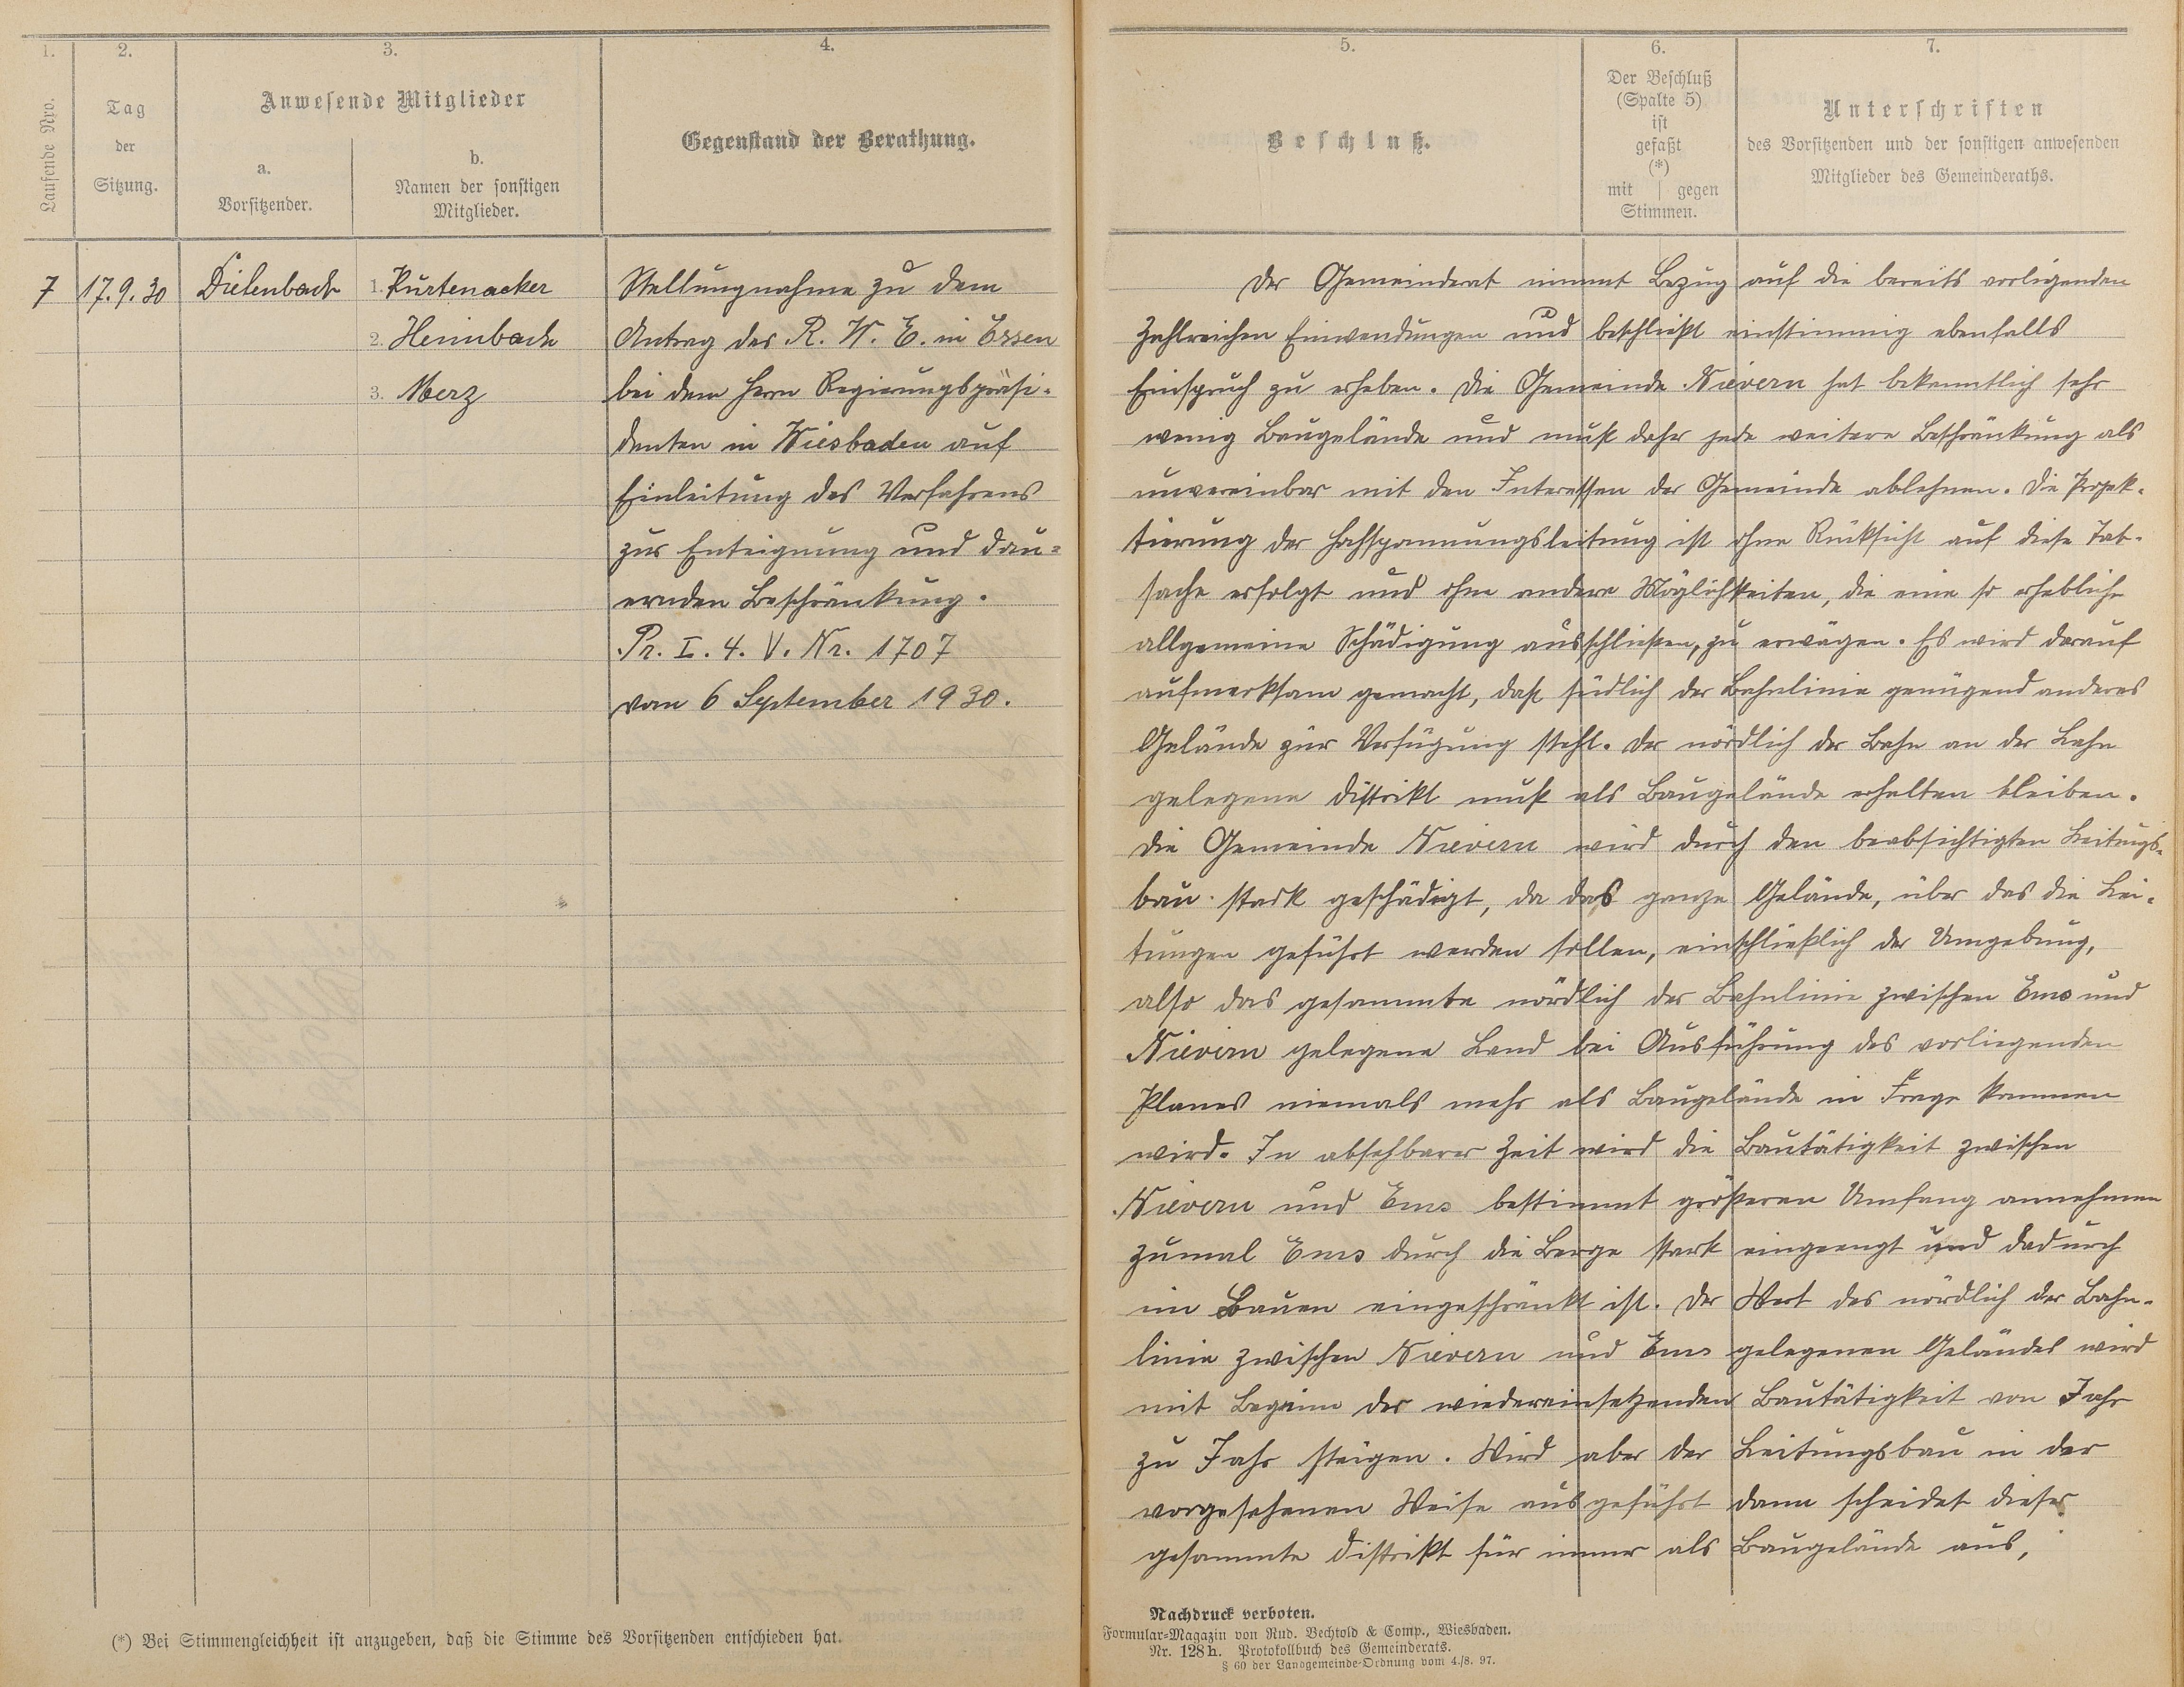 1.
2.
3.
4.
Laufende Nro.
Tag
der
Sitzung.
Anwesende Mitglieder
a.
Vorsitzender.
b.
Namen der sonstigen
Mitglieder.
Gegenstand der Berathung.
7
17.9.30
Dietenbach
1. Kurtenacker
2. Heimbach
3. Merz
Stellungnahme zu dem
Antrag des R. W. E. in Essen
bei dem Herrn Regierungspräsi-
denten in Wiesbaden auf
Einleitung des Verfahrens
zur Enteignung und dau-
ernden Beschränkung.
Pr. I. 4. V. Nr. 1707
vom 6 September 1930.
(*) Bei Stimmengleichheit ist anzugeben, daß die Stimme des Vorsitzenden entschieden hat.
5.
6.
7.
Beschluß.
Der Beschluß
(Spalte 5)
ist
gefaßt
(*)
mit | gegen
Stimmen.
Unterschriften
des Vorsitzenden und der sonstigen anwesenden
Mitglieder des Gemeinderaths.
Der Gemeinderat nimmt Bezug auf die bereits vorliegenden
zahlreichen Einwendungen und beschließt einstimmig ebenfalls
Einspruch zu erheben. Die Gemeinde Nievern hat bekanntlich sehr
wenig Baugelände und muß daher jede weitere Beschränkung als
unvereinbar mit den Interessen der Gemeinde ablehnen. Die Projek-
tierung der Hochspannungsleitung ist ohne Rücksicht auf diese Tat-
sache erfolgt und ohne andere Möglichkeiten, die eine so erhebliche
allgemeine Schädigung ausschließen, zu erwägen. Es wird darauf
aufmerksam gemacht, daß südlich der Bahnlinie genügend anderes
Gelände zur Verfügung steht. Der nördlich der Bahn an der Lahn
gelegene Distrikt muß als Baugelände erhalten bleiben.
Die Gemeinde Nievern wird durch den beabsichtigten Leitungs-
bau stark geschädigt, da das ganze Gelände, über das die Lei-
tungen geführt werden sollen, einschließlich der Umgebung,
also das gesammte nördlich der Bahnlinie zwischen Ems und
Nievern gelegene Land bei Ausführung des vorliegenden
Planes niemals mehr als Baugelände in Frage kommen
wird. In absehbarer Zeit wird die Bautätigkeit zwischen
Nievern und Ems bestimmt größeren Umfang annehmen
zumal Ems durch die Berge stark eingeengt und dadurch
im Bauen eingeschränkt ist. Der Wert des nördlich der Bahn-
linie zwischen Nievern und Ems gelegenen Geländes wird
mit Beginn der wiedereinsetzenden Bautätigkeit von Jahr
zu Jahr steigen. Wird aber der Leitungsbau in der
vorgesehenen Weise ausgeführt dann scheidet dieser
gesammte Distrikt für immer als Baugelände aus,
Nachdruck verboten.
Formular-Magazin von Rud. Bechtold & Comp., Wiesbaden.
Nr. 128h. Protokollbuch des Gemeinderats.
§ 60 der Landgemeinde-Ordnung vom 4./8. 97.